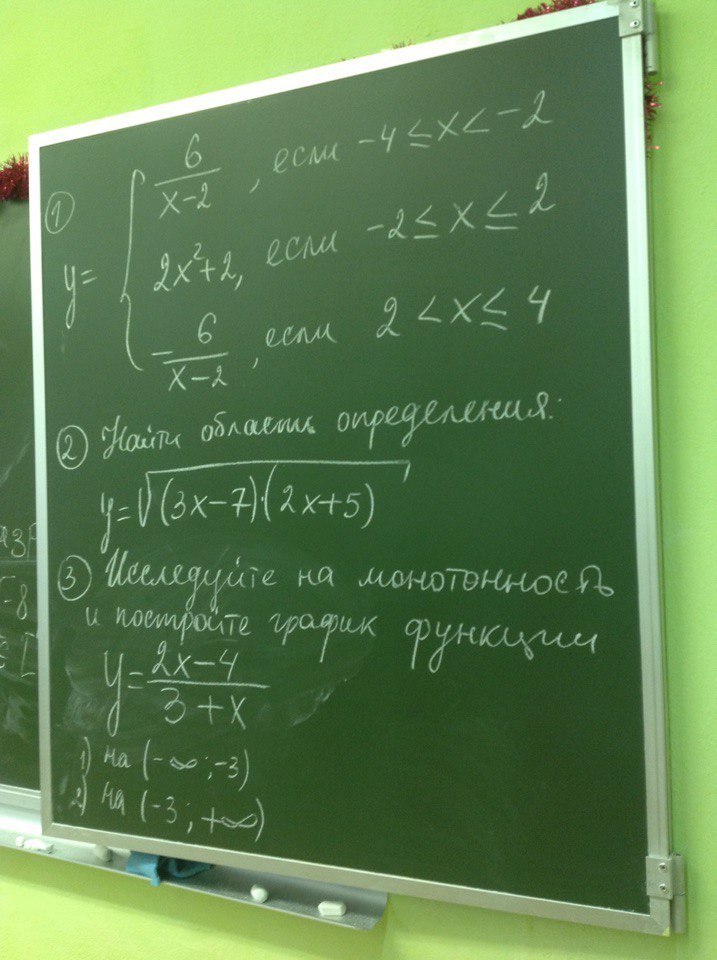 ① y = { 6/(x-2), если -4 ≤ x < -2
2x²+2, если -2 ≤ x ≤ 2
-6/(x-2), если 2 < x ≤ 4
② Найти область определения:
y=√(3x-7)·(2x+5)
③ Исследуйте на монотонность
и постройте график функции
y = (2x-4)/(3+x)
1) на (-∞; -3)
2) на (-3; +∞)